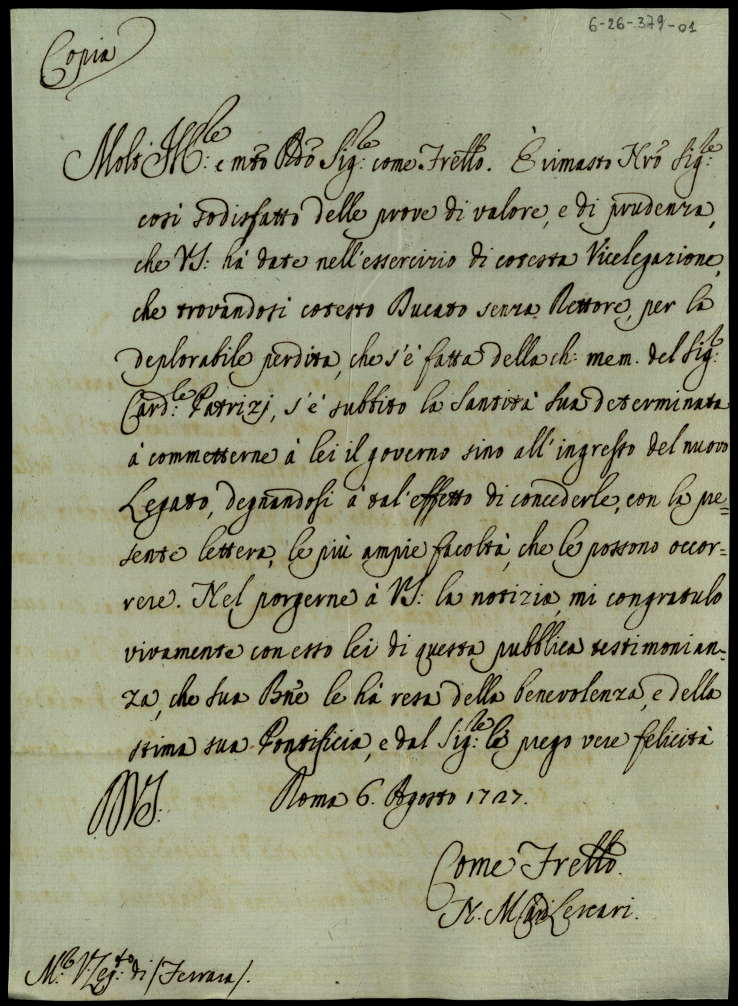 6-26-379-01
Copia
Molt'Ill.le: e mto Rdo Sig.re: come Frello. È rimasto Nro Sig.re:
così sodisfatto delle prove di valore, e di prudenza,
che VS: hà date nell'essercizio di cotesta Vicelegazione,
che trovandosi cotesto Ducato senza Rettore, per la
deplorabile perdita, che s'è fatta della ch: mem. del Sig.r:
Card.le: Patrizj, s'è subbito la Santità Sua determinata
à commetterne à lei il governo sino all'ingresso del nuovo
Legato, degnandosi à tal'effetto di concederle, con la pre=
sente lettera, le più ampie facoltà, che le possono occor=
rere. Nel porgerne à VS: la notizia, mi congratulo
vivamente con esso lei di questa pubblica testimonian-
za, che Sua Bne le hà resa della benevolenza, e della
stima sua Pontificia, e dal Sig.re: le prego vere felicità
Roma 6. Agosto 1727.
DVS:
Come Frello.
N. M. Card. Lercari.
M.r V.Leg.to: di /Ferrara/.